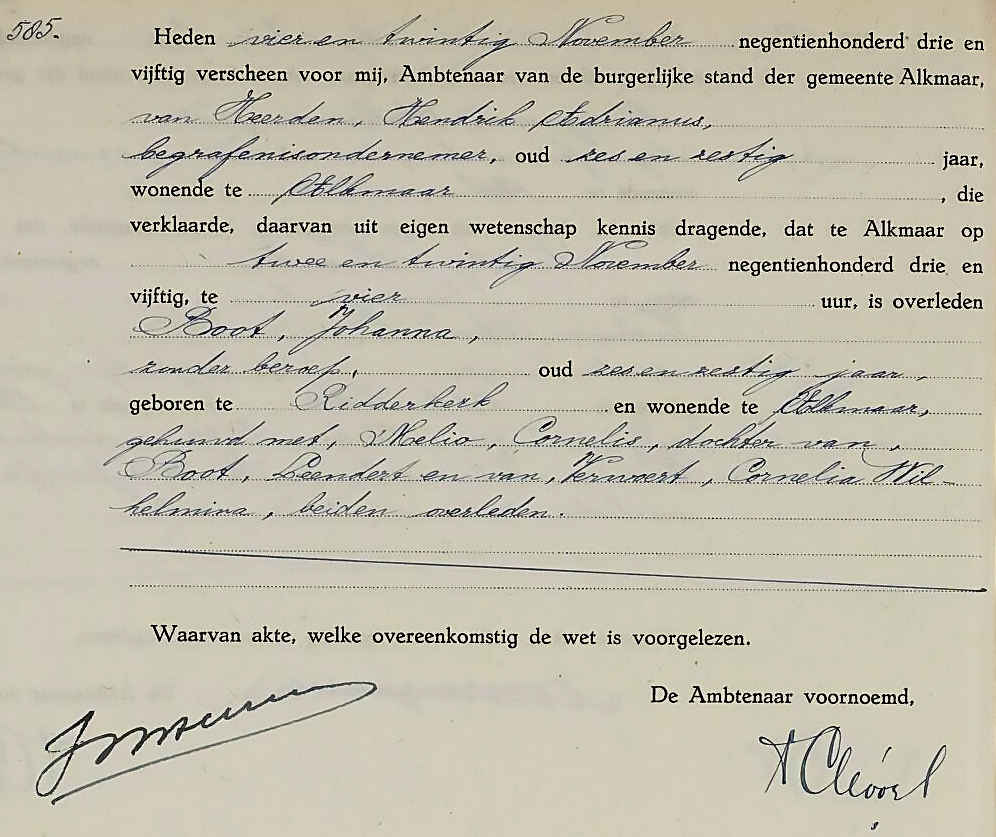 585.
Heden vier en twintig November negentienhonderd drie en
vijftig verscheen voor mij, Ambtenaar van de burgerlijke stand der gemeente Alkmaar,
van Heerden, Hendrik Adrianus,
begrafenisondernemer, oud zes en zestig jaar,
wonende te Alkmaar, die
verklaarde, daarvan uit eigen wetenschap kennis dragende, dat te Alkmaar op
twee en twintig November negentienhonderd drie en
vijftig, te vier uur, is overleden
Boot, Johanna,
zonder beroep, oud zes en zestig jaar,
geboren te Ridderkerk en wonende te Alkmaar,
gehuwd met, Melio, Cornelis, dochter van,
Boot, Leendert en van, Verwoert, Cornelia Wil-
helmina, beiden overleden.
Waarvan akte, welke overeenkomstig de wet is voorgelezen.
De Ambtenaar voornoemd,